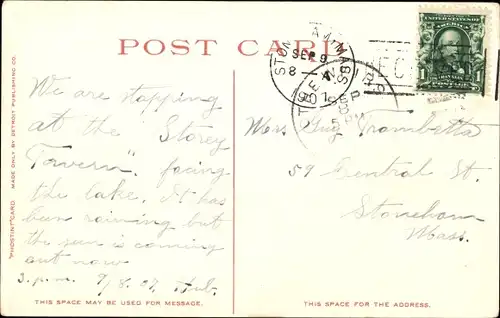 POST CARD
STONEHAM, MASS.
SEP 9
8 -
190
1
1
We are stopping
at the "Storey
Tavern", facing
the lake. It has
been raining but
the sun is coming
out now
3. p.m. 9/8.07.
Mrs Guy Trombetta
59 Central St.
Stoneham
Mass.
"PHOSTINT" CARD. MADE ONLY BY DETROIT PUBLISHING CO.
THIS SPACE MAY BE USED FOR MESSAGE.
THIS SPACE IS FOR THE ADDRESS.